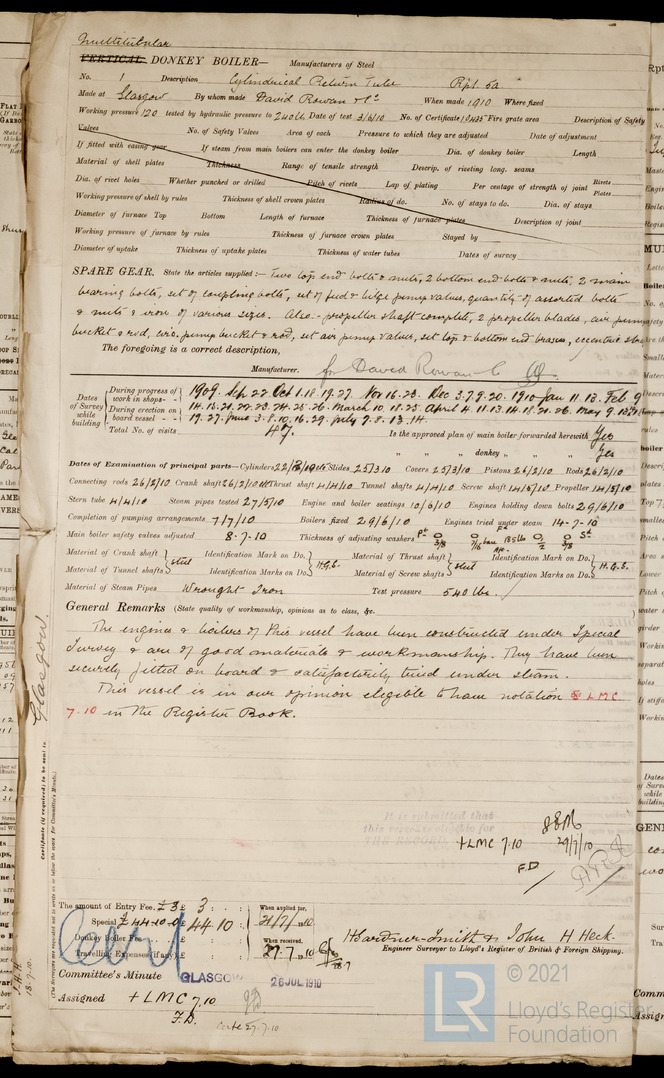 Multitubular
VERTICAL DONKEY BOILER— Manufacturers of Steel
No. 1 Description Cylindrical Return Tube Rpt. 5a
Made at Glasgow By whom made David Rowan & Co When made 1910 Where fixed
Working pressure 120 tested by hydraulic pressure to 240 lb Date of test 3/6/10 No. of Certificate Fire grate area Description of Safety
Valves No. of Safety Valves Area of each Pressure to which they are adjusted Date of adjustment
If fitted with easing gear If steam from main boilers can enter the donkey boiler Dia. of donkey boiler Length
Material of shell plates Thickness Range of tensile strength Descrip. of riveting long. seams
Dia. of rivet holes Whether punched or drilled Pitch of rivets Lap of plating Per centage of strength of joint Rivets Plates
Working pressure of shell by rules Thickness of shell crown plates Radius of do. No. of stays to do. Dia. of stays
Diameter of furnace Top Bottom Length of furnace Thickness of furnace plates Description of joint
Working pressure of furnace by rules Thickness of furnace crown plates Stayed by
Diameter of uptake Thickness of uptake plates Thickness of water tubes Dates of survey
SPARE GEAR. State the articles supplied:— Two top end bolts & nuts, 2 bottom end bolts & nuts, 2 main
bearing bolts, set of coupling bolts, set of feed & bilge pump valves, quantity of assorted bolts
& nuts & iron of various sizes. Also:- propeller shaft complete, 2 propeller blades, air pump
bucket & rod, circ. pump bucket & rod, set air pump valves, set top & bottom end brasses, eccentric
The foregoing is a correct description,
Manufacturer. for David Rowan & Co
Dates of Survey while building
During progress of work in shops - - 1909. Sep 22 Oct 1.18.19.27. Nov 16.23. Dec 3.7.9.20. 1910 Jan 11.13. Feb 9
During erection on board vessel - - - 14.15.21.22.23.24.25.26. March 10.18.23. April 4.11.13.14.18.21.26. May 9.13
19.27. June 3.8.10.16.29. July 7.8.13.14.
Total No. of visits 47. Is the approved plan of main boiler forwarded herewith Yes
" " " donkey " " " Yes
Dates of Examination of principal parts—Cylinders Slides 25/3/10 Covers 25/3/10 Pistons 26/2/10 Rods 26/2/10
Connecting rods 26/2/10 Crank shaft 26/2/10 Thrust shaft 4/4/10 Tunnel shafts 4/4/10 Screw shaft 14/5/10 Propeller 14/5/10
Stern tube 4/4/10 Steam pipes tested 27/5/10 Engine and boiler seatings 10/6/10 Engines holding down bolts 29/6/10
Completion of pumping arrangements 7/7/10 Boilers fixed 29/6/10 Engines tried under steam 14-7-10
Main boiler safety valves adjusted 8.7.10 Thickness of adjusting washers Pt 3/8 7/16 185 lb 1/2 St
Material of Crank shaft Identification Mark on Do. Material of Thrust shaft Identification Mark on Do.
steel H.G.S. steel H.G.S.
Material of Tunnel shafts Identification Marks on Do. Material of Screw shafts Identification Marks on Do.
Material of Steam Pipes Wrought Iron Test pressure 540 lbs.
General Remarks (State quality of workmanship, opinions as to class, &c.
The engines & boilers of this vessel have been constructed under Special
Survey & are of good materials & workmanship. They have been
securely fitted on board & satisfactorily tried under steam.
This vessel is in our opinion eligible to have notation LMC
7.10 in the Register Book.
Glasgow.
Certificate (if required) to be sent to
(The Surveyors are requested not to write on or below the space for Committee's Minute.)
It is submitted that
this vessel is eligible for
THE RECORD.
+LMC 7.10
29/7/10
F.D.
The amount of Entry Fee. £3 £ 3 : : When applied for,
Special £44-10-0 £ 44.10 : 21/7/1910
Donkey Boiler Fee £ : : When received,
Travelling Expenses (if any) £ : : 27.7.1910
H Gardner-Smith & John H Heck.
Engineer Surveyor to Lloyd's Register of British & Foreign Shipping.
Committee's Minute GLASGOW 26 JUL 1910
Assigned + LMC 7.10
F.D.
27.7.10
© 2021
Lloyd's Register
Foundation
LR